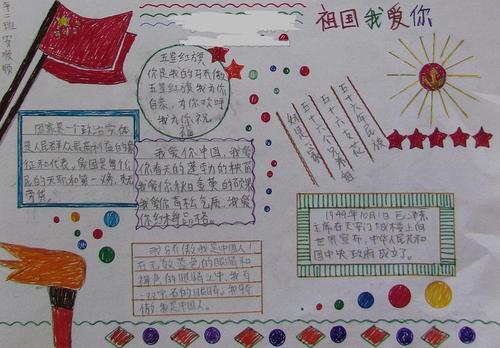 祖国我爱你
五星红旗
你是我的
五星红旗我为你
自豪,为你欢呼
我为你祝
福
五十六个民族
五十六支花
五十六个兄弟
国家是一个政治实体
是人民群众最高利益的象
征和代表,爱国是每个公
民的天职和第一
我爱你中国,我爱
你春天蓬勃的秧苗
我爱你秋日金黄的硕果
我爱你青松气质,我爱
你红梅品格。
我骄傲我是中国人!
在无数蓝色的眼睛和
褐色的眼睛之中,我有
我骄
傲,我是中国人。
1949年10月1日毛泽东
主席在天安门城楼上向
世界宣布,中华人民共和
国中央政府成立了。